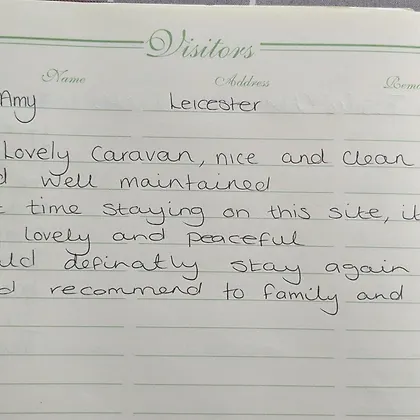 Visitors
Name Address
Amy Leicester
Lovely caravan, nice and clean
well maintained
time staying on this site,
lovely and peaceful
definatly stay again
recommend to family and